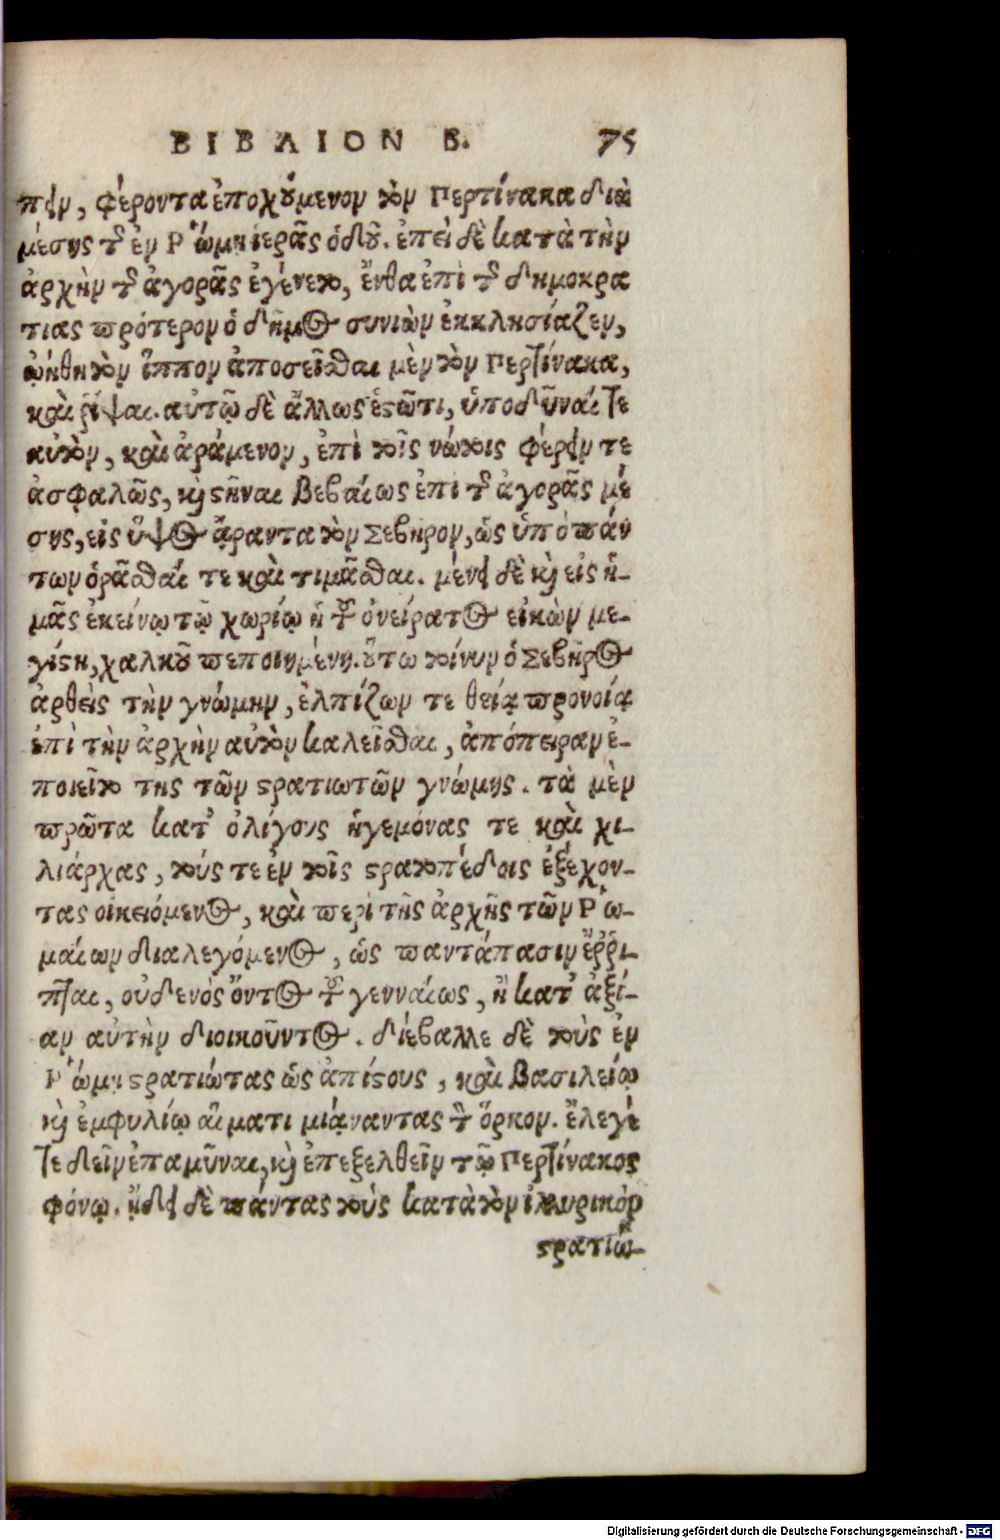 ΒΙΒΛΙΟΝ Β. 75
πειν, φέροντα ἐποχούμενον τὸν Περτίνακα διὰ
μέσης τῆς ἐν Ῥώμῃ ἱερᾶς ὁδοῦ. ἐπεὶ δὲ κατὰ τὴν
ἀρχὴν τῆς ἀγορᾶς ἐγένετο, ἔνθα ἐπὶ τῆς δημοκρα
τιας πρότερον ὁ δῆμος συνιὼν ἐκκλησίαζεν,
ᾠήθη τὸν ἵππον ἀποσείσασθαι μὲν τὸν Περτίνακα,
καὶ ῥίψαι. αὐτῷ δὲ ἄλλως ἑστῶτι, ὑποδῦναί τε
αὐτὸν, καὶ ἀράμενον, ἐπὶ τοῖς νώτοις φέρειν τε
ἀσφαλῶς, καὶ στῆναι βεβαίως ἐπι τῆς ἀγορᾶς μέ
σης, εἰς ὕψος ἄραντα τὸν Σεβῆρον, ὡς ὑπὸ πάν
των ὁρᾶσθαί τε καὶ τιμᾶσθαι. μένει δὲ καὶ εἰς ἡ-
μᾶς ἐκείνῳ τῷ χωρίῳ ἡ τοῦ ὀνείρατος εἰκὼν με-
γίστη, χαλκοῦ πεποιημένη. οὕτω τοίνυν ὁ Σεβῆρος
ἀρθεὶς τὴν γνώμην, ἐλπίζων τε θείᾳ προνοίᾳ
ἐπὶ τὴν ἀρχὴν αὐτὸν καλεῖσθαι, ἀπόπειραν ἐ-
ποιεῖτο της τῶν στρατιωτῶν γνώμης. τὰ μὲν
πρῶτα κατ᾽ ὀλίγους ἡγεμόνας τε καὶ χι-
λιάρχας, τούς τε ἐν τοῖς στρατοπέδοις ἐξέχον-
τας οἰκειόμενος, καὶ περὶ τῆς ἀρχῆς τῶν Ῥω-
μαίων διαλεγόμενος, ὡς παντάπασιν ἔῤῥι-
πται, οὐδενός ὄντος τοῦ γενναίως, ἢ κατ᾽ ἀξί-
αν αὐτὴν διοικοῦντος. διέβαλλε δὲ τοὺς ἐν
Ῥώμῃ στρατιώτας ὡς ἀπίστους, καὶ βασιλείῳ
καὶ ἐμφυλίῳ αἵματι μιάναντας τὸν ὅρκον. ἔλεγέ
τε δεῖν ἐπαμῦναι, καὶ ἐπεξελθεῖν τῷ Περτίνακος
φόνῳ. ᾔδει δὲ πάντας τοὺς κατὰ τὸν ἰλλυρικὸν
στρατιώ-
Digitalisierung gefördert durch die Deutsche Forschungsgemeinschaft - DFG